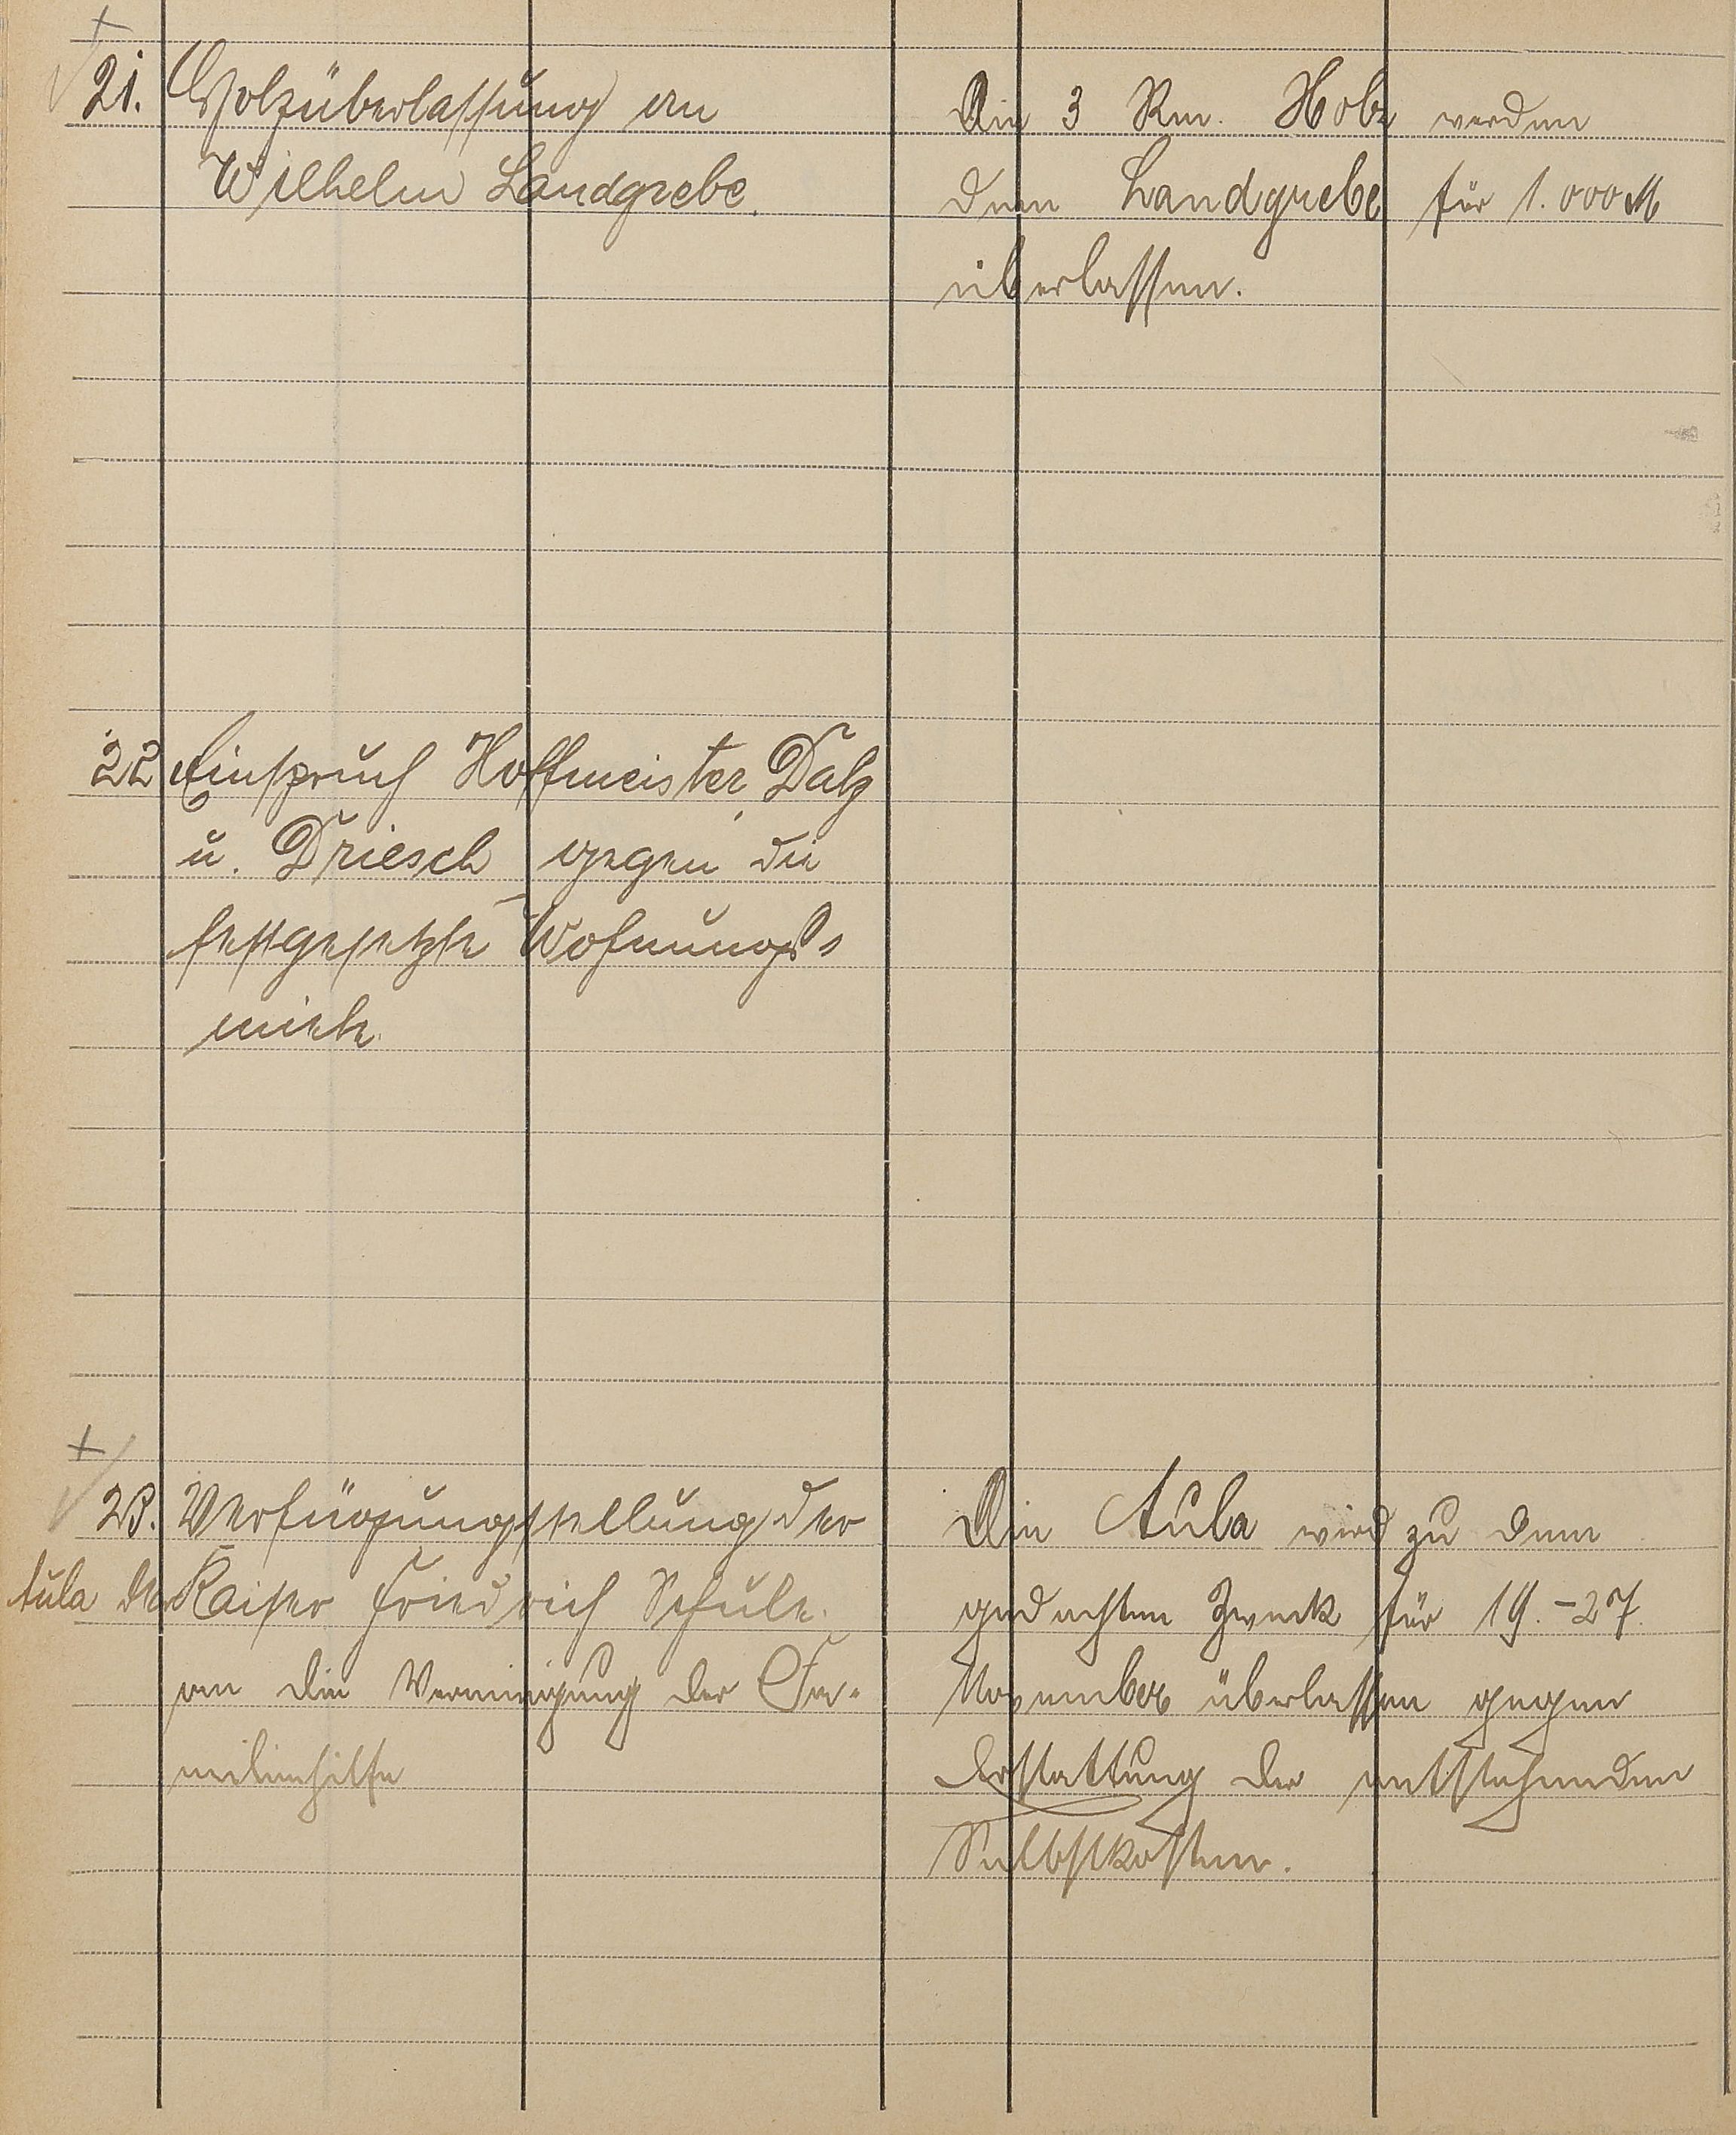 21. Holzüberlassung an
Wilhelm Landgrebe.
Die 3 Rm. Holz werden
dem Landgrebe für 1.000 M
überlassen.
22 Einspruch Hoffmeister, Dalz
u. Driesch gegen die
festgesetzte Wohnungs-
miete.
23. Verfügungstellung der
Aula der Kaiser Friedrich Schule.
an die Vereinigung der Fa-
milienhilfe
Die Aula wird zu dem
gedachten Zweck für 19.-27.
November überlassen gegen
Erstattung der entstehenden
Selbstkosten.